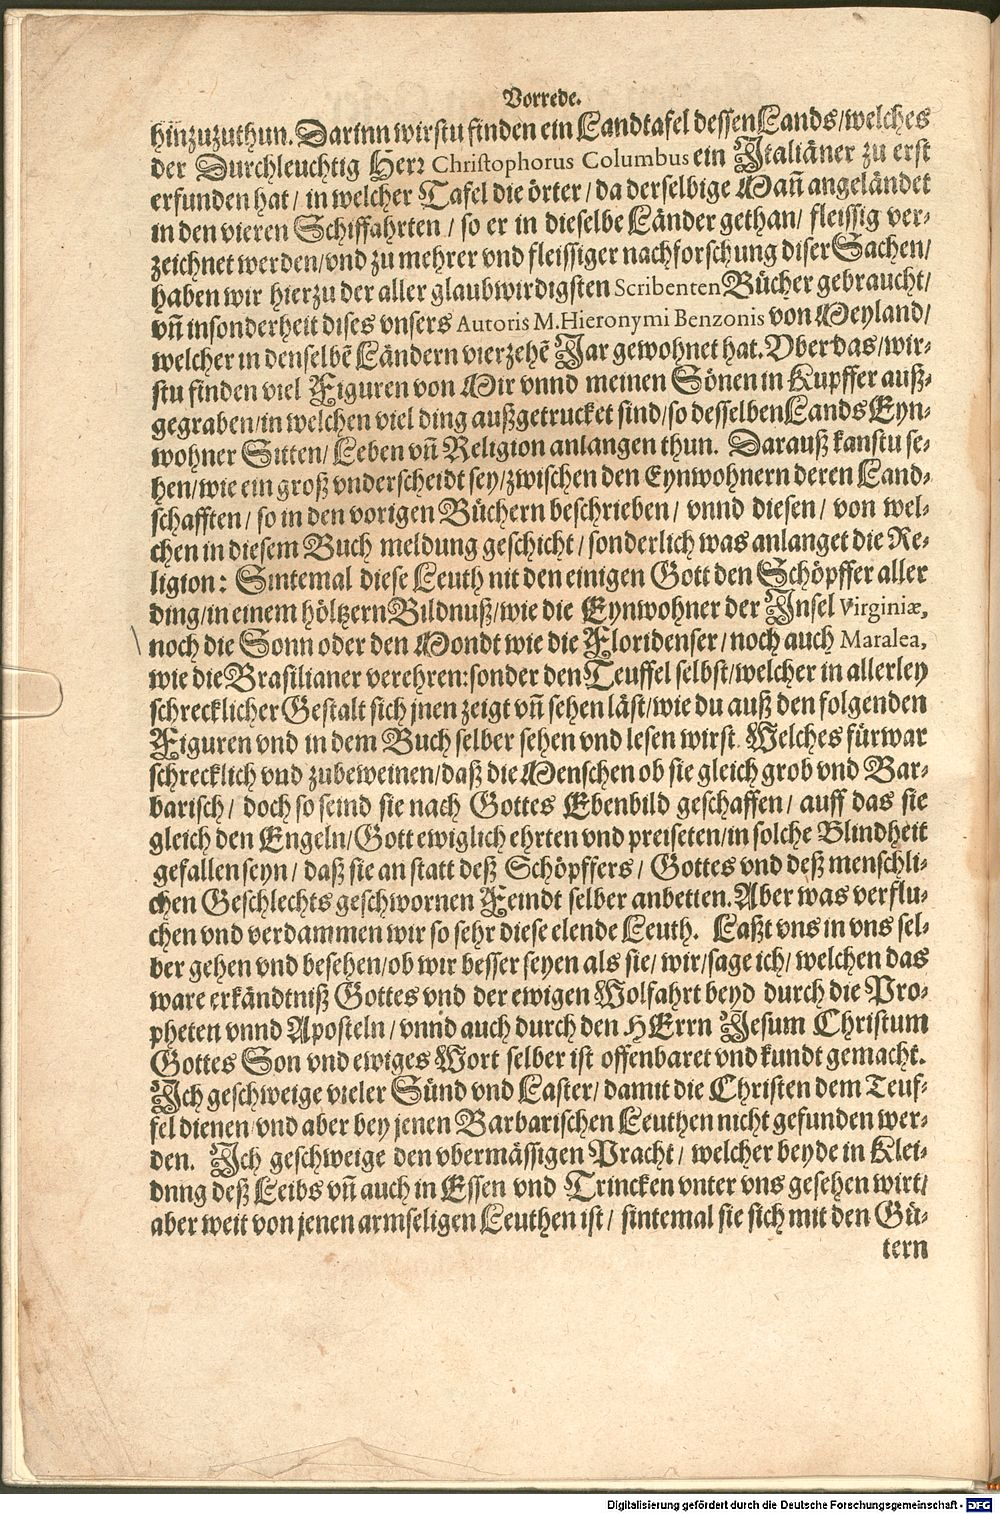 Vorrede.
hinzuzuthun. Darinn wirstu finden ein Landtafel dessen Lands/welches
der Durchleuchtig Herr Christophorus Columbus ein Italiäner zu erst
erfunden hat/ in welcher Tafel die örter/ da derselbige Mañ angeländet
in den vieren Schiffahrten/ so er in dieselbe Länder gethan/ fleissig ver-
zeichnet werden/vnd zu mehrer vnd fleissiger nachforschung diser Sachen/
haben wir hierzu der aller glaubwirdigsten Scribenten Bücher gebraucht/
vñ insonderheit dises vnsers Autoris M. Hieronymi Benzonis von Meyland/
welcher in denselbẽ Ländern vierzehẽ Jar gewohnet hat. Vber das/wir-
stu finden viel Figuren von Mir vnnd meinen Sönen in Kupffer auß-
gegraben/in welchen viel ding außgetrucket sind/so desselben Lands Eyn-
wohner Sitten/ Leben vñ Religion anlangen thun. Darauß kanstu se-
hen/wie ein groß vnderscheidt sey/zwischen den Eynwohnern deren Land-
schafften/ so in den vorigen Büchern beschrieben/ vnnd diesen/ von wel-
chen in diesem Buch meldung geschicht/ sonderlich was anlanget die Re-
ligion: Sintemal diese Leuth nit den einigen Gott den Schöpffer aller
ding/in einem höltzern Bildnuß/wie die Eynwohner der Insel Virginiæ,
noch die Sonn oder den Mondt wie die Floridenser/noch auch Maralea,
wie die Brasilianer verehren:sonder den Teuffel selbst/welcher in allerley
schrecklicher Gestalt sich jnen zeigt vñ sehen läst/wie du auß den folgenden
Figuren vnd in dem Buch selber sehen vnd lesen wirst. Welches fürwar
schrecklich vnd zubeweinen/daß die Menschen ob sie gleich grob vnd Bar-
barisch/ doch so seind sie nach Gottes Ebenbild geschaffen/ auff das sie
gleich den Engeln/Gott ewiglich ehrten vnd preiseten/in solche Blindheit
gefallen seyn/ daß sie an statt deß Schöpffers/ Gottes vnd deß menschli-
chen Geschlechts geschwornen Feindt selber anbetten. Aber was verflu-
chen vnd verdammen wir so sehr diese elende Leuth. Laßt vns in vns sel-
ber gehen vnd besehen/ob wir besser seyen als sie/ wir/sage ich/ welchen das
ware erkändtniß Gottes vnd der ewigen Wolfahrt beyd durch die Pro-
pheten vnnd Aposteln/ vnnd auch durch den HErrn Jesum Christum
Gottes Son vnd ewiges Wort selber ist offenbaret vnd kundt gemacht.
Ich geschweige vieler Sünd vnd Laster/ damit die Christen dem Teuf-
fel dienen/vnd aber bey jenen Barbarischen Leuthen nicht gefunden wer-
den. Ich geschweige den vbermässigen Pracht/ welcher beyde in Klei-
dnng deß Leibs vñ auch in Essen vnd Trincken vnter vns gesehen wirt/
aber weit von jenen armseligen Leuthen ist/ sintemal sie sich mit den Gü-
tern
Digitalisierung gefördert durch die Deutsche Forschungsgemeinschaft - DFG